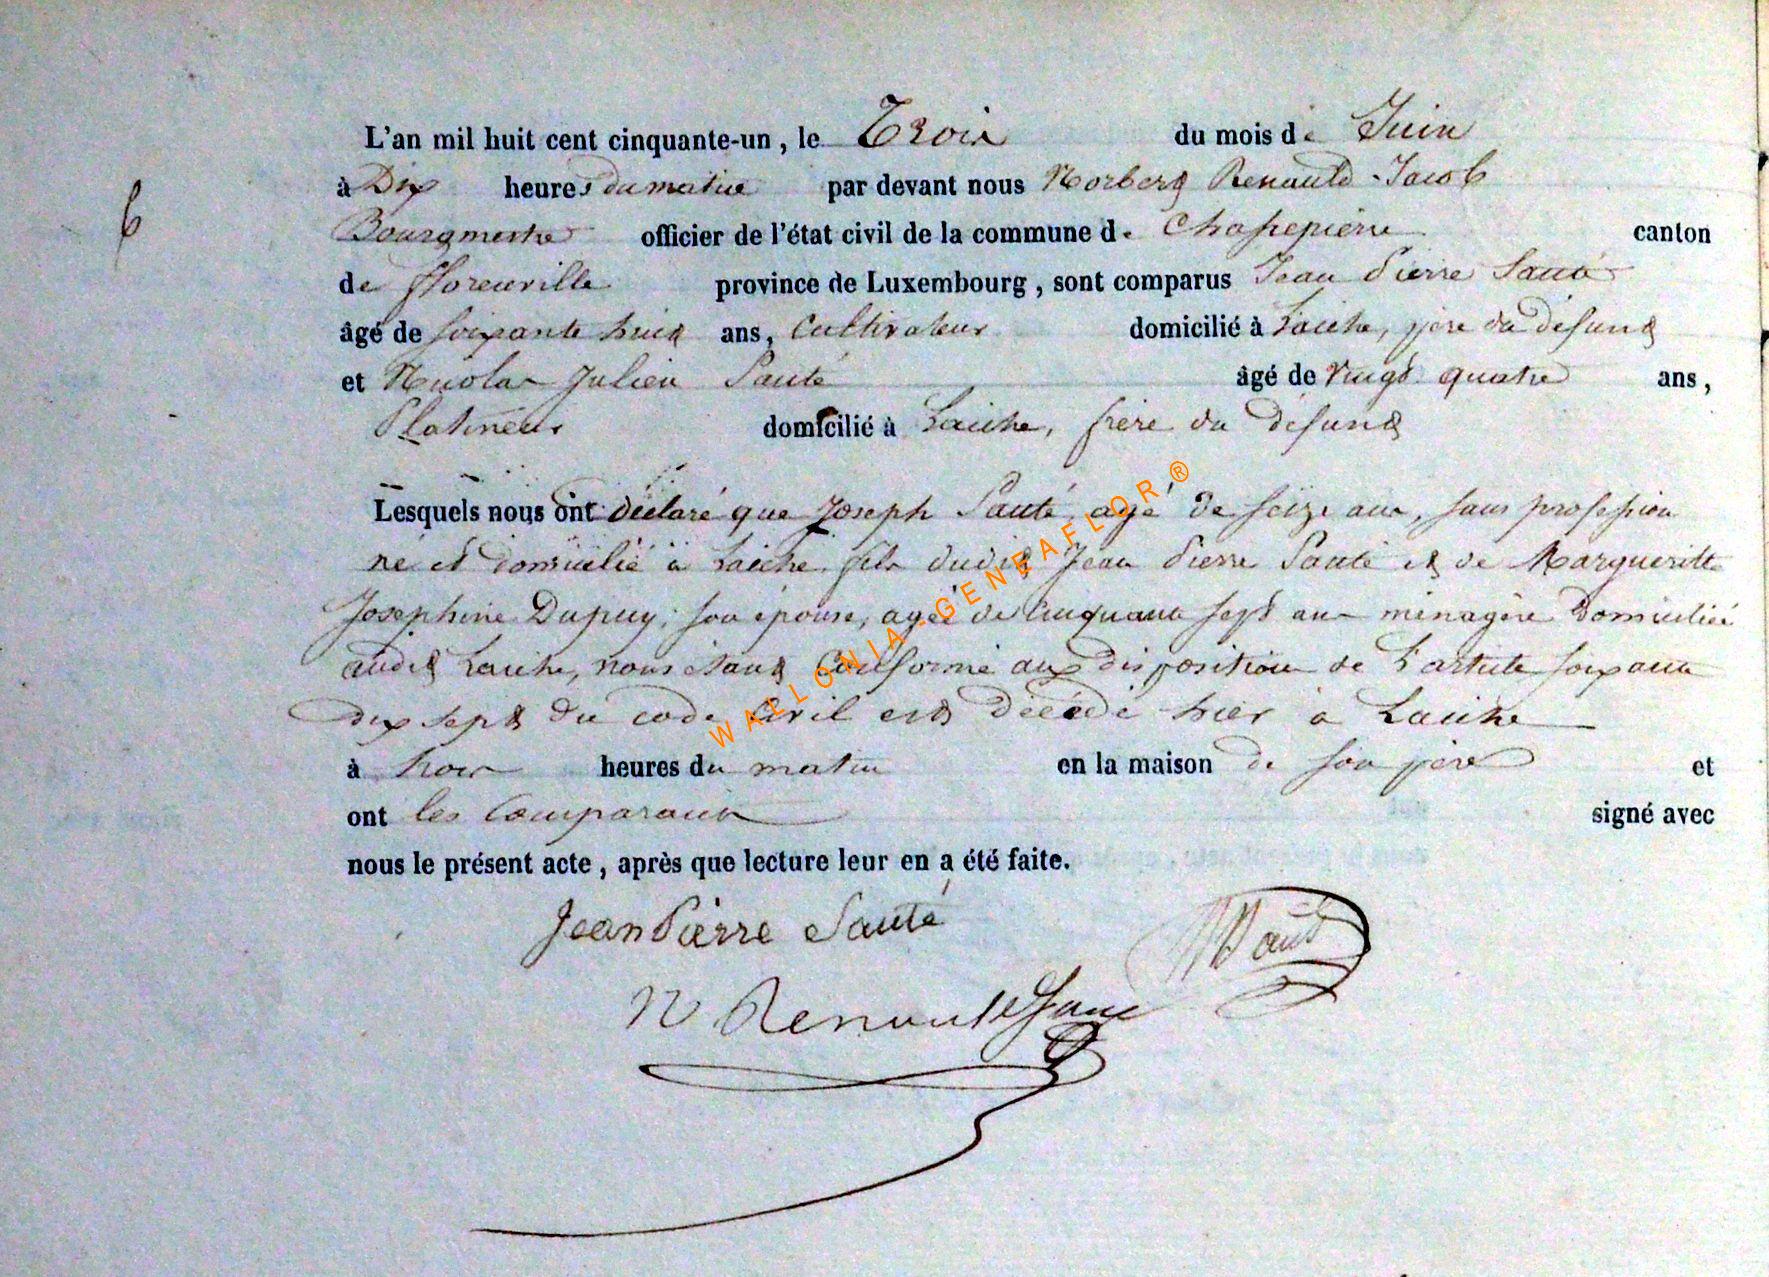 L'an mil huit cent cinquante-un, le Trois du mois de Juin
à Dix heures du matin par devant nous Norbert Renauld-Jacob
6
Bourgmestre officier de l'état civil de la commune de Chassepierre canton
de Florenville province de Luxembourg, sont comparus Jean Pierre Sauté
âgé de soixante huit ans, Cultivateur domicilié à Laiche, père du défunt
et Nicolas Julien Sauté âgé de Vingt quatre ans,
Platineur domicilié à Laiche, frère du défunt
Lesquels nous ont déclaré que Joseph Sauté, agé de seize ans, sans profession
né et domicilié à Laiche, fils dudit Jean Pierre Sauté et de Margueritte
Josephine Dupuy, son épouse, agée de Cinquante sept ans ménagère domiciliée
audit Laiche, nous étant Conformé aux dispositions de l'article soixante
dix sept du code Civil est décédé hier à Laiche
à trois heures du matin en la maison de son père et
ont les Comparants signé avec
nous le présent acte, après que lecture leur en a été faite.
Jean Pierre Sauté
N Sauté
N Renauld Jacob
WALLONIA-GENEAFLOR®